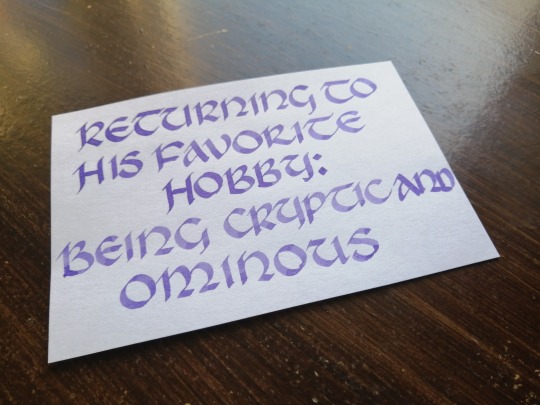 RETURNING TO
HIS FAVORITE
HOBBY:
BEING CRYPTIC AND
OMINOUS